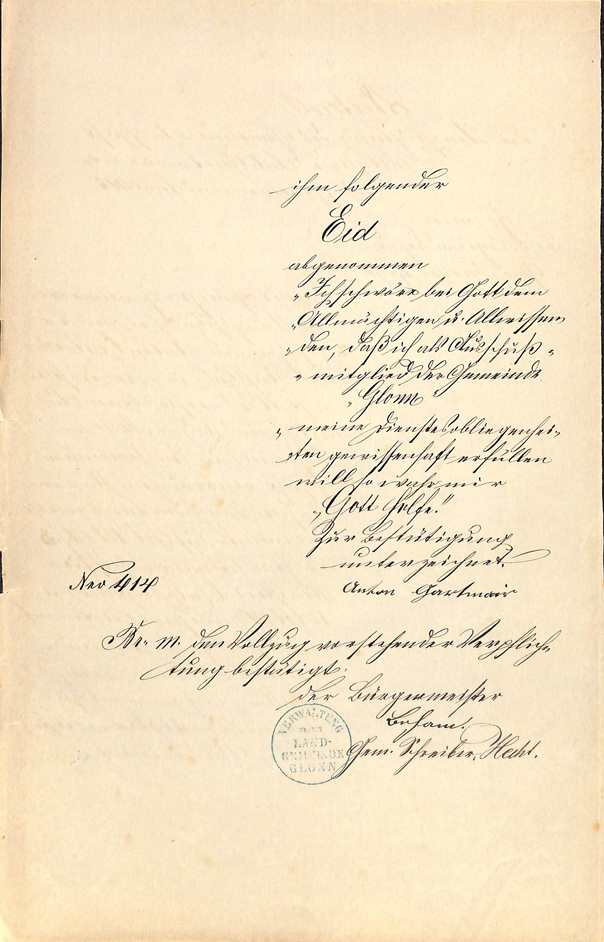 ihm folgender
Eid
abgenommen
„Ich schwöre bei Gott dem
„Allmächtigen u. Allwissen
„den, daß ich als Ausschuß„
„mitglied der Gemeinde
„Glonn
„meine Dienstesobliegenhei„
„ten gewissenhaft erfüllen
will so wahr mir
„Gott helfe."
Zur Bestätigung
unterzeichnet.
Nro 414
Anton Gartmair
Br. m. den Vollzug vorstehender Verpflich„
tung bestätigt.
der Bürgermeister
Beham.
Gem. Schreiber, Hecht.
VERWALTUNG
DER
LAND-
GEMEINDE
GLONN